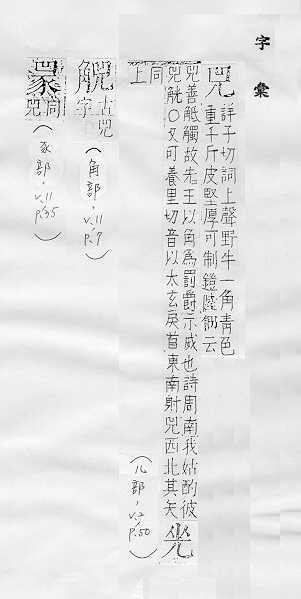 字彙
兕 詳子切詞上聲野牛一角青色
重千斤皮堅厚可制鎧陸佃云
兕善觝觸故先王以角為罰爵示威也詩周南我姑酌彼
兕觥〇又可養里切音以太玄戾首東南射兕西北其矢
同上
(儿部,v.2,p.50)
古兕字
(角部,v.11,p.9)
同兕
(豕部,v.11,p.35)